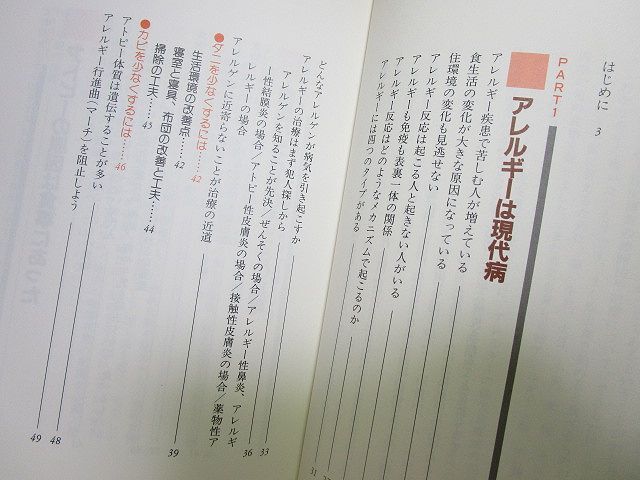 はじめに 3
PART1
アレルギーは現代病
アレルギー疾患で苦しむ人が増えている
食生活の変化が大きな原因になっている
住環境の変化も見逃せない
アレルギー反応は起こる人と起きない人がいる
アレルギーも免疫も表裏一体の関係
アレルギー反応はどのようなメカニズムで起こるのか
アレルギーには四つのタイプがある 31
どんなアレルゲンが病気を引き起こすか 33
アレルギーの治療はまず犯人探しから 36
アレルゲンを知ることが先決/ぜんそくの場合/アレルギー性鼻炎、アレルギ
ー性結膜炎の場合/アトピー性皮膚炎の場合/接触性皮膚炎の場合/薬物性ア
レルギーの場合
アレルゲンに近寄らないことが治療の近道 39
●ダニを少なくするには……42
生活環境の改善点……42
寝室と寝具、布団の改善と工夫……44
掃除の工夫……45
●カビを少なくするには……46
アトピー体質は遺伝することが多い 48
アレルギー行進曲(マーチ)を阻止しよう 49